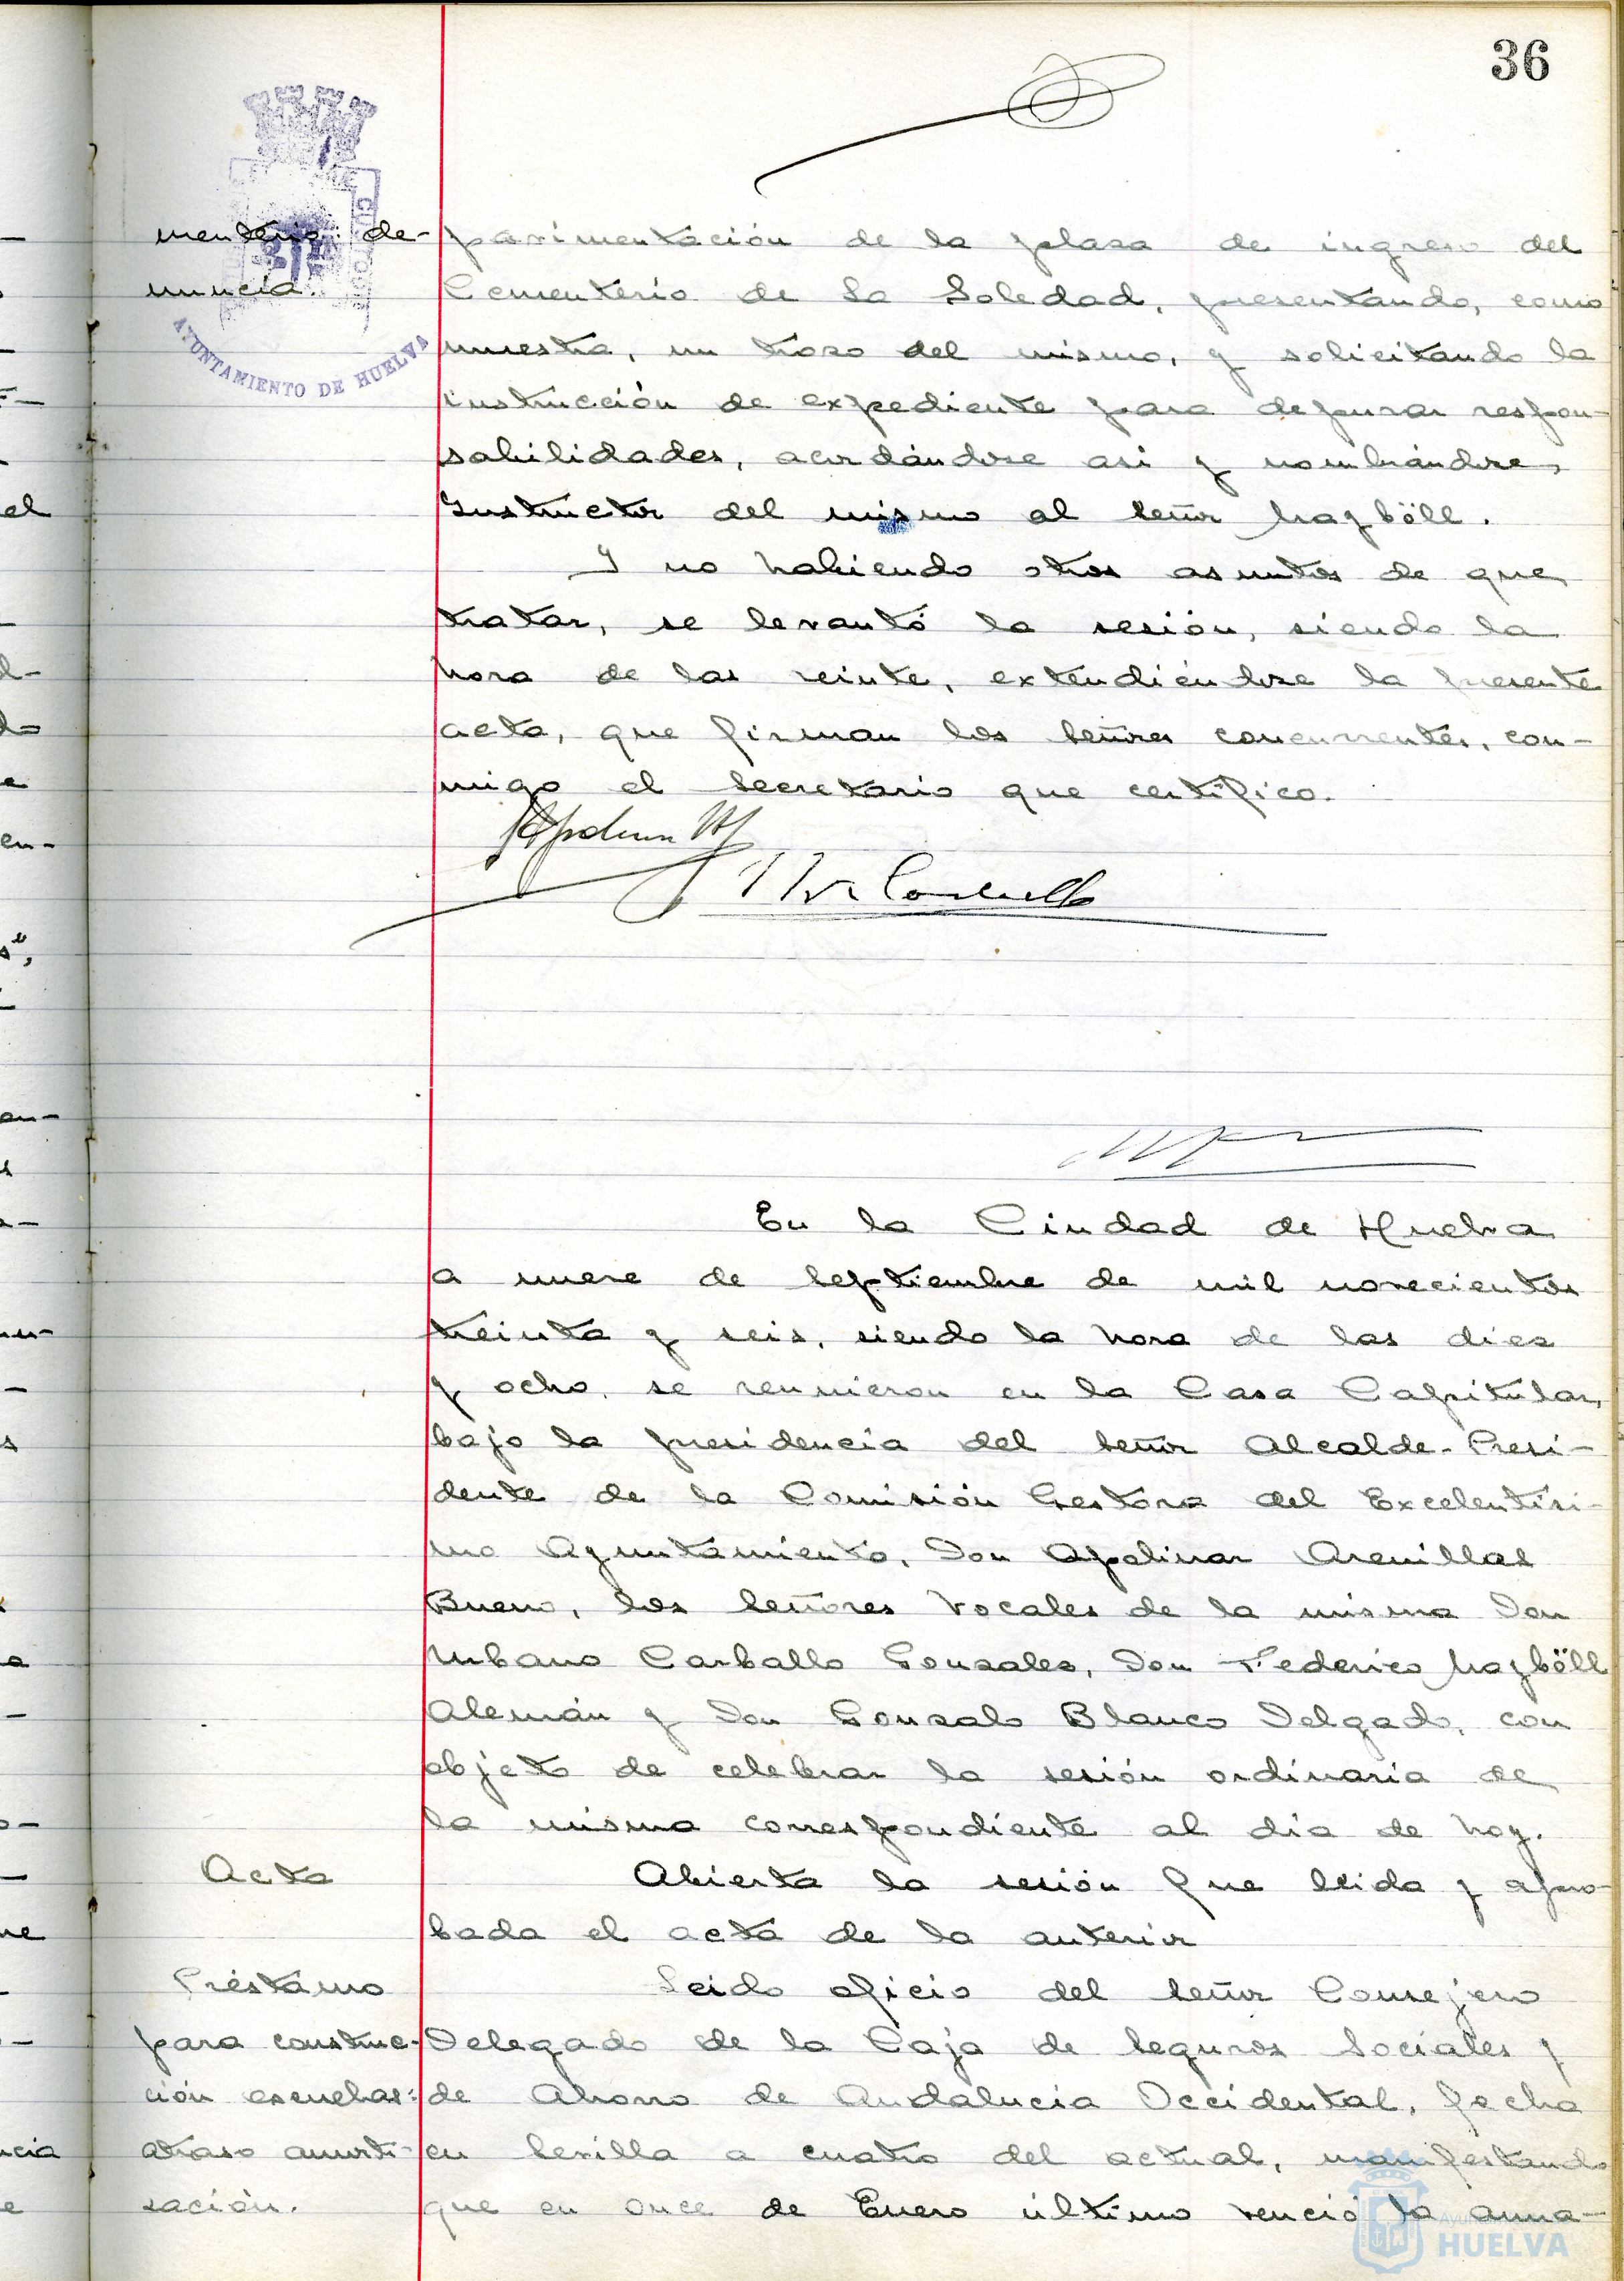 36
AYUNTAMIENTO DE HUELVA
menterio: de-
nuncia.
pavimentación de la plaza de ingreso del
Cementerio de La Soledad, presentando, como
muestra, un trozo del mismo, y solicitando la
instrucción de expediente para depurar respon-
sabilidades, acordándose asi y nombrándose,
Instructor del mismo al Señor Mazböll.
Y no habiendo otros asuntos de que
tratar, se levantó la sesión, siendo la
hora de las veinte, extendiéndose la presente
acta, que firman los Señores concurrentes, con-
migo el Secretario que certifico.
En la Ciudad de Huelva
a nueve de Septiembre de mil novecientos
treinta y seis, siendo la hora de las diez
y ocho, se reunieron en la Casa Capitular,
bajo la presidencia del Señor Alcalde-Presi-
dente de la Comisión Gestora del Excelentísi-
mo Ayuntamiento, Don Apolinar Arenillas
Bueno, los Señores Vocales de la misma Don
Urbano Carballo Gonzalez, Don Federico
Alemán y Don Gonzalo Blanco Delgado, con
objeto de celebrar la sesión ordinaria de
la misma correspondiente al día de hoy.
Acta
Abierta la sesión fue leida y apro-
bada el acta de la anterior
Préstamo
para construc-
ción escuelas:
atraso amorti-
zación.
Leido oficio del Señor Consejero
Delegado de la Caja de Seguros Sociales y
de Ahorro de Andalucia Occidental, fecha
en Sevilla a cuatro del actual, manifestando
que en once de Enero último venció la anua-
HUELVA